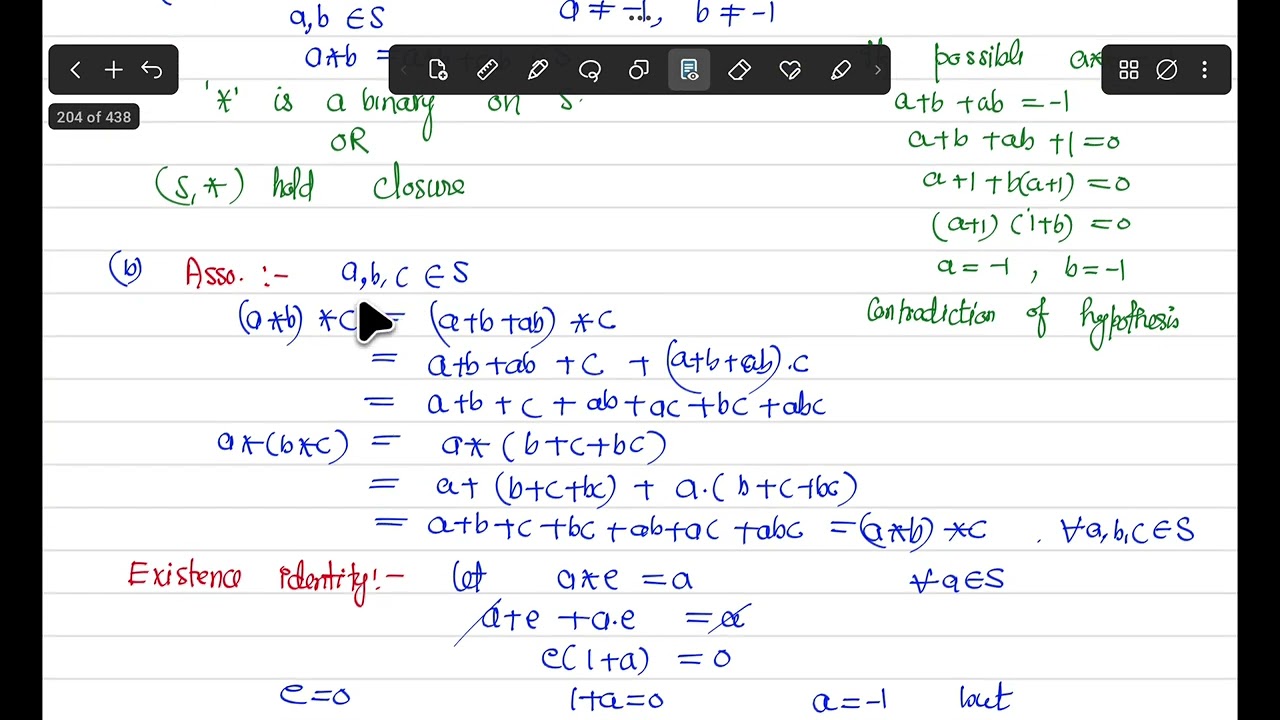 a,b ∈ S a ≠ -1, b ≠ -1
a*b =
possible
'*' is a binary on S.
204 of 438
a+b +ab = -1
OR
a+b +ab +1 =0
(S,*) hold closure
a+1 +b(a+1) =0
(a+1) (1+b) =0
a = -1 , b = -1
Contradiction of hypothesis
(b) Asso. :- a,b,c ∈ S
(a*b) *c = (a+b+ab) *c
= a+b+ab +c + (a+b+ab).c
= a+b+c+ab+ac+bc+abc
a*(b*c) = a*(b+c+bc)
= a+ (b+c+bc) + a.(b+c+bc)
= a+b+c+bc+ab+ac+abc =(a*b) *c . ∀a,b,c ∈ S
Existence identity:- let a*e = a ∀a∈S
a+e +a.e = a
e(1+a) = 0
e=0 1+a=0 a=-1 but